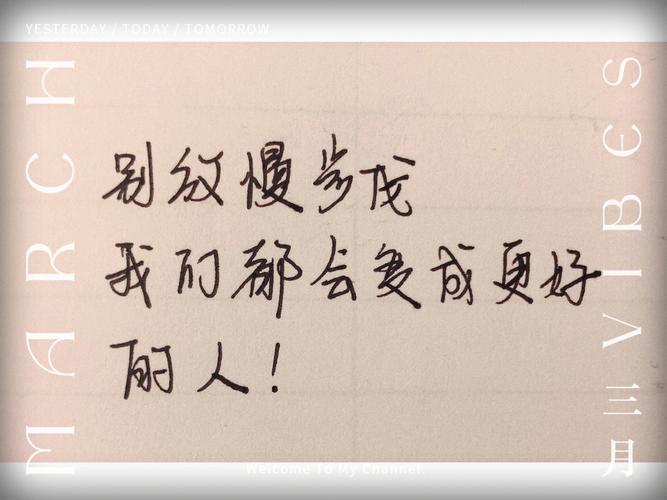 YESTERDAY / TODAY / TOMORROW
MARCH
别放慢步伐
我们都会变成更好
的人！
三月
VIBES
Welcome To My Channel.